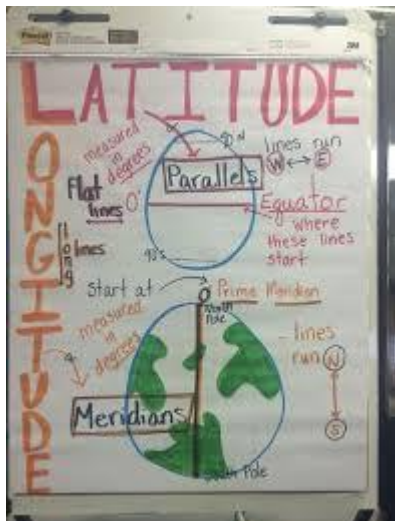 LATITUDE
LONGITUDE
measured
in
degrees
90°N
lines run
W ↔ E
Parallels
Flat
lines
0°
Equator
where
these lines
start
long
lines
90°S
Start at
0°
Prime Meridian
North
Pole
measured
in
degrees
lines
run
N
S
Meridians
South Pole